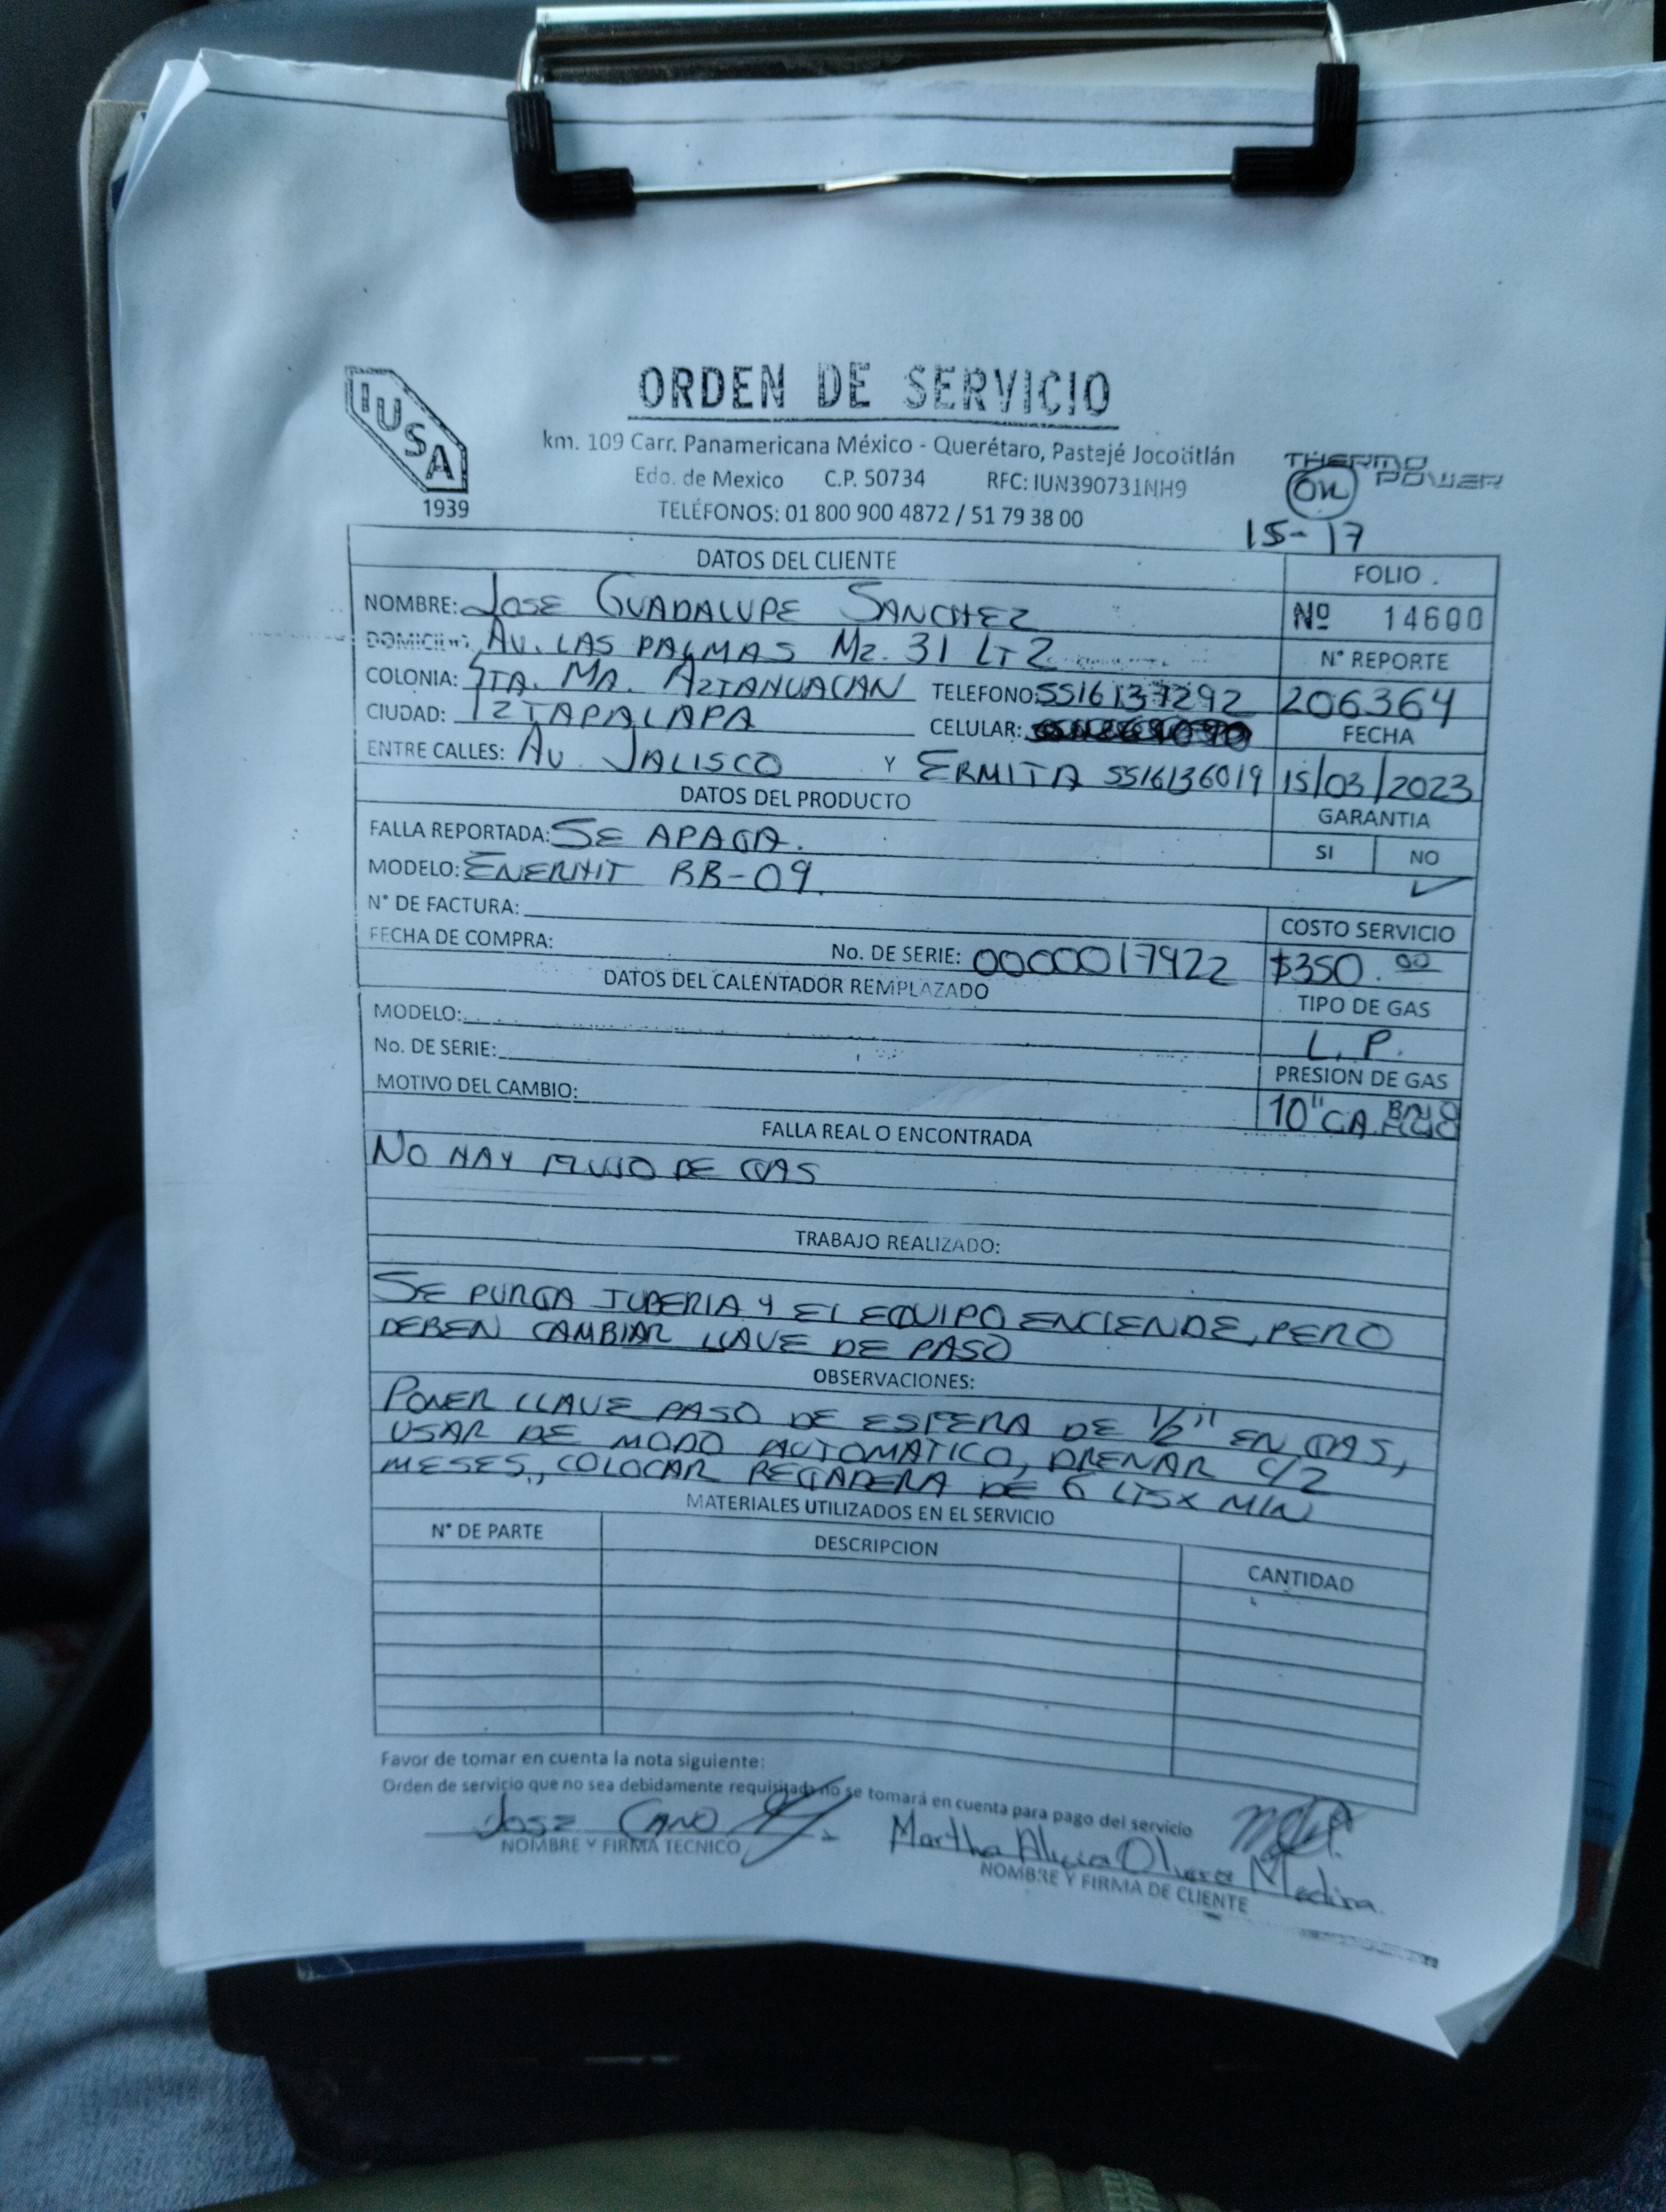 IUSA
1939
ORDEN DE SERVICIO
km. 109 Carr. Panamericana México - Querétaro, Pastejé Jocotitlán
Edo. de Mexico C.P. 50734 RFC: IUN390731NH9
TELÉFONOS: 01 800 900 4872 / 51 79 38 00
THERMO POWER
ON
15-17
DATOS DEL CLIENTE
FOLIO
NOMBRE: JOSE GUADALUPE SANCHEZ
Nº 14600
DOMICILIO: AV. LAS PALMAS MZ. 31 LT 2
N° REPORTE
COLONIA: STA. MA. AZTAHUACAN TELEFONO: 5516137292
206364
CIUDAD: IZTAPALAPA CELULAR:
FECHA
ENTRE CALLES: AV. JALISCO Y ERMITA 5516136019
15/03/2023
DATOS DEL PRODUCTO
GARANTIA
FALLA REPORTADA: SE APAGA.
SI NO
MODELO: ENERHIT BB-09.
✓
N° DE FACTURA:
COSTO SERVICIO
FECHA DE COMPRA: No. DE SERIE: 0000017922
$350.00
DATOS DEL CALENTADOR REMPLAZADO
TIPO DE GAS
MODELO:
L.P.
No. DE SERIE:
PRESION DE GAS
MOTIVO DEL CAMBIO:
10" CA. BAJO
FALLA REAL O ENCONTRADA
NO HAY FLUJO DE GAS
TRABAJO REALIZADO:
SE PURGA TUBERIA Y EL EQUIPO ENCIENDE, PERO
DEBEN CAMBIAR LLAVE DE PASO
OBSERVACIONES:
PONER LLAVE PASO DE ESFERA DE 1/2" EN GAS,
USAR DE MODO AUTOMATICO, DRENAR C/2
MESES, COLOCAR REGADERA DE 6 LTS X MIN
MATERIALES UTILIZADOS EN EL SERVICIO
N° DE PARTE DESCRIPCION CANTIDAD
Favor de tomar en cuenta la nota siguiente:
Orden de servicio que no sea debidamente requisitada no se tomará en cuenta para pago del servicio
JOSE CANO
Martha Alicia Olvera Medina
NOMBRE Y FIRMA TECNICO
NOMBRE Y FIRMA DE CLIENTE